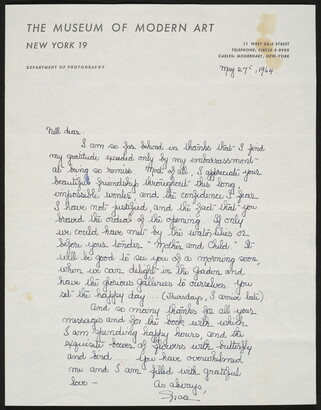 THE MUSEUM OF MODERN ART
NEW YORK 19
11 WEST 53rd STREET
TELEPHONE: CIRCLE 5-8900
CABLES: MODERNART, NEW-YORK
DEPARTMENT OF PHOTOGRAPHY
May 27, 1964
Nell dear
I am so far behind in thanks that I find
my gratitude equaled only by my embarrassment
at being so remiss. Most of all, I appreciate your
beautiful friendship throughout this long,
impossible winter and the confidence I fear
I have not justified and the fact that you
braved the ordeal of the opening. If only
we could have met by the waterlilies or
before your tender "Mother and Child". It
will be good to see you of a morning soon,
when we can delight in the garden and
have the glorious galleries to ourselves. you
set the happy day (Thursdays, I arrive late)
And so many thanks for all your
messages and for the book with which
I am spending happy hours, and the
exquisite boxes of flowers with butterfly
and bird.... you have overwhelmed
me and I am filled with grateful
love -
As always,